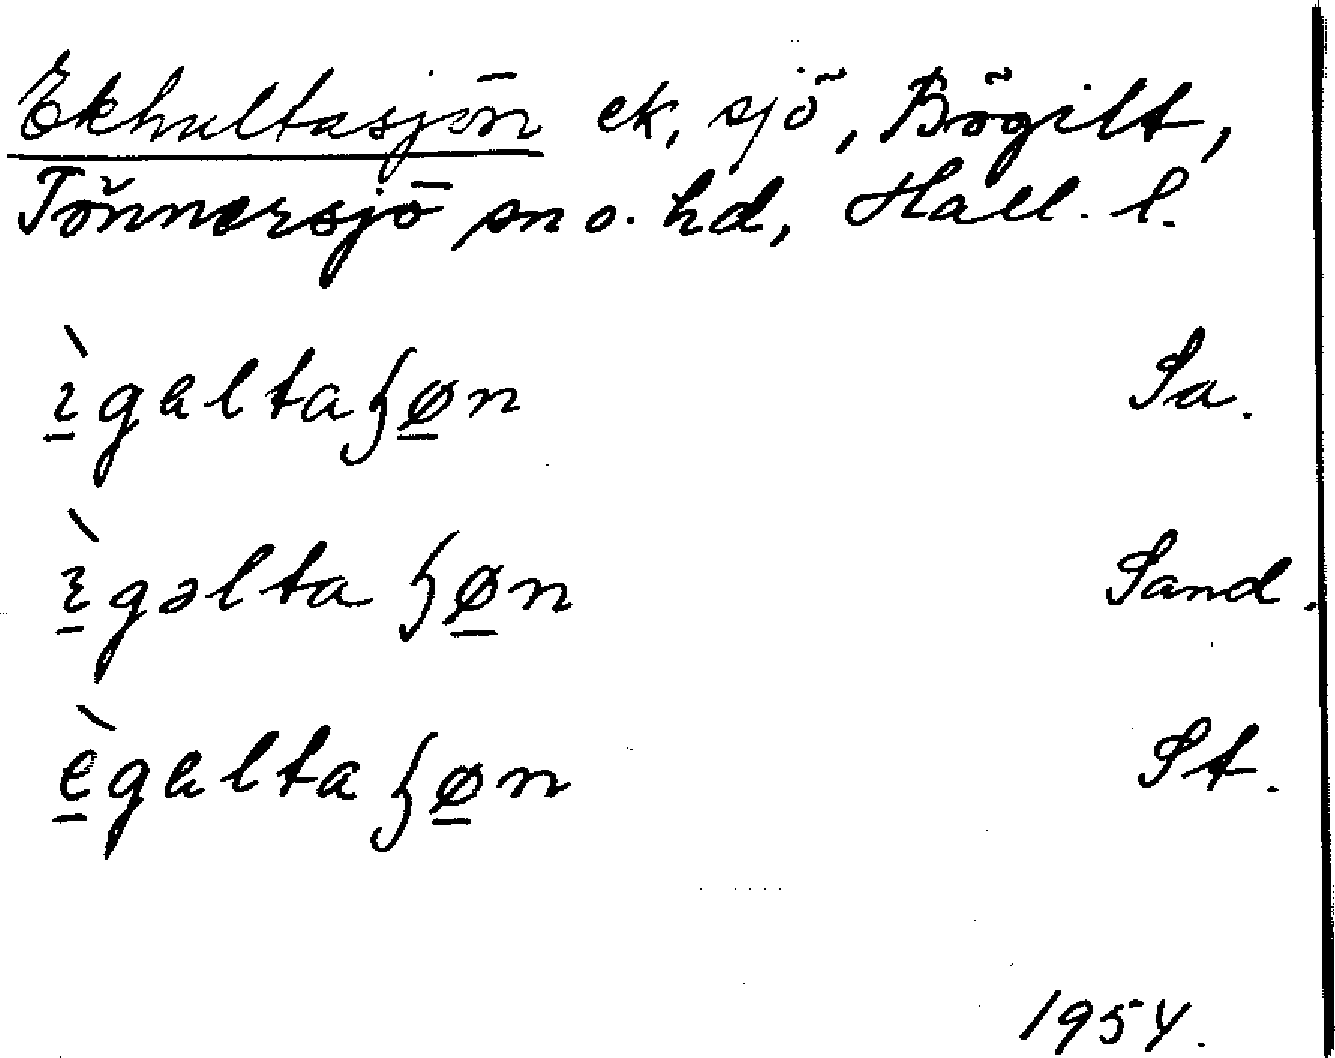 Ekhultasjön ek, sjö, Bögilt,
Tönnersjö sn o. hd, Hall. l.
ı̱̀gɐltaɧø̱n Sa.
ı̱̀gəltaɧø̱n Sand.
è̱gɐltaɧø̱n St.
1954.